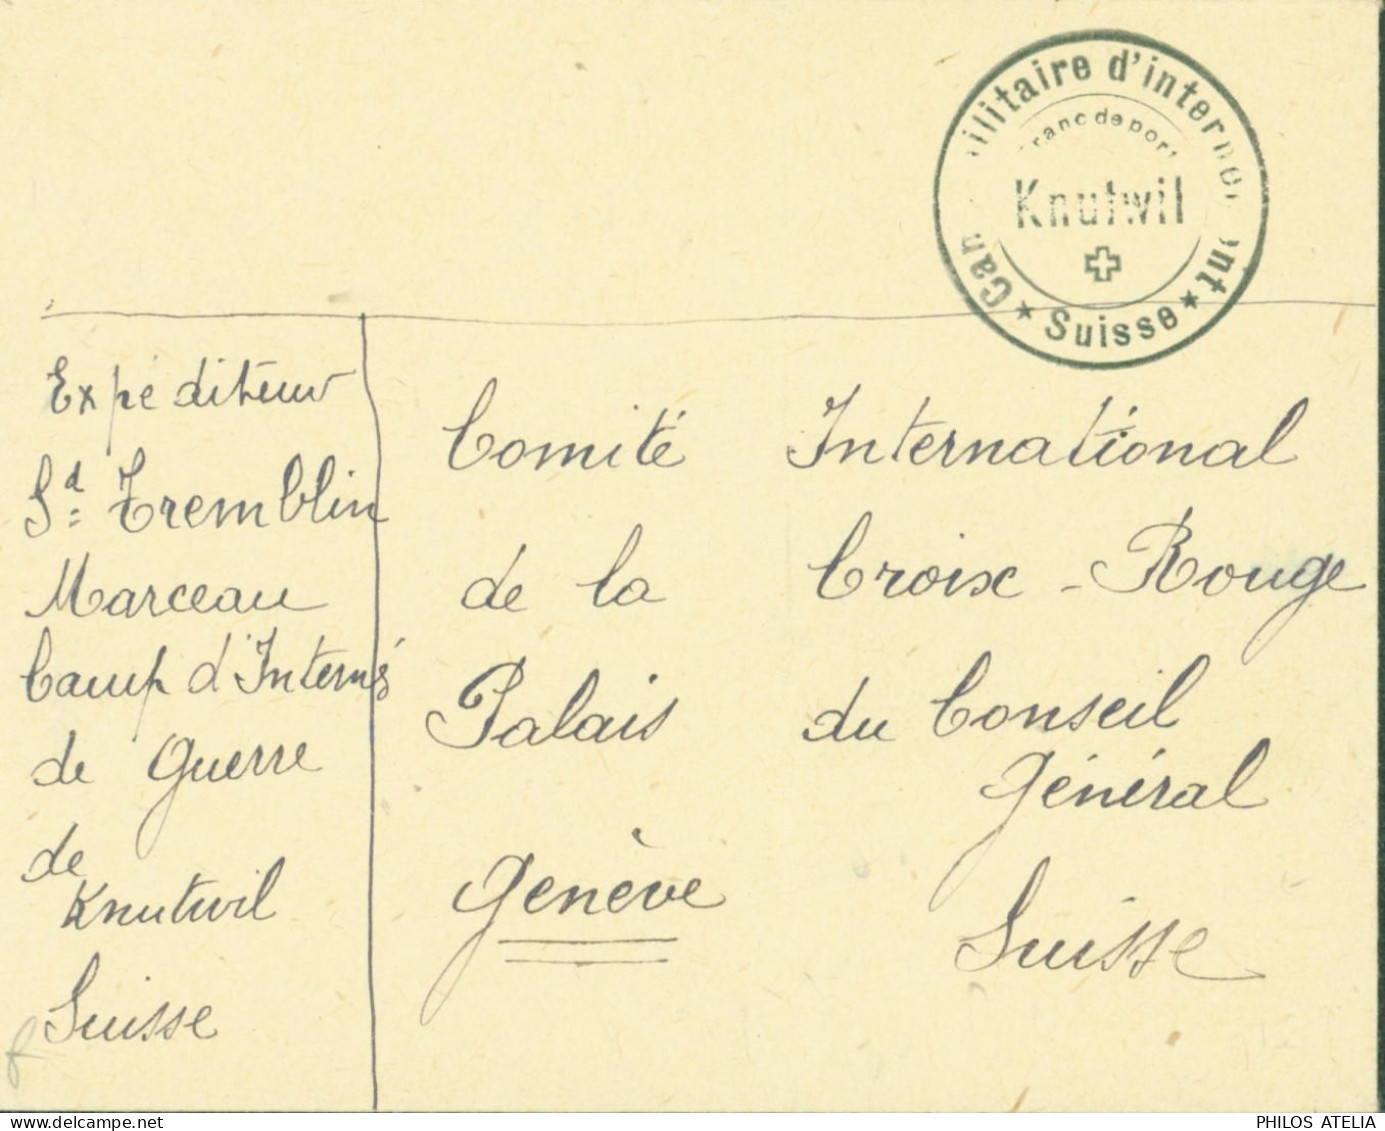 Camp militaire d'internement
Franc de port
Knutwil
★ Suisse ★
Expéditeur
Sd: Tremblin
Marceau
Camp d'Internés
de Guerre
de
Knutwil
Suisse
Comité International
de la Croix-Rouge
Palais du Conseil
Général
Genève Suisse
PHILOS ATELIA